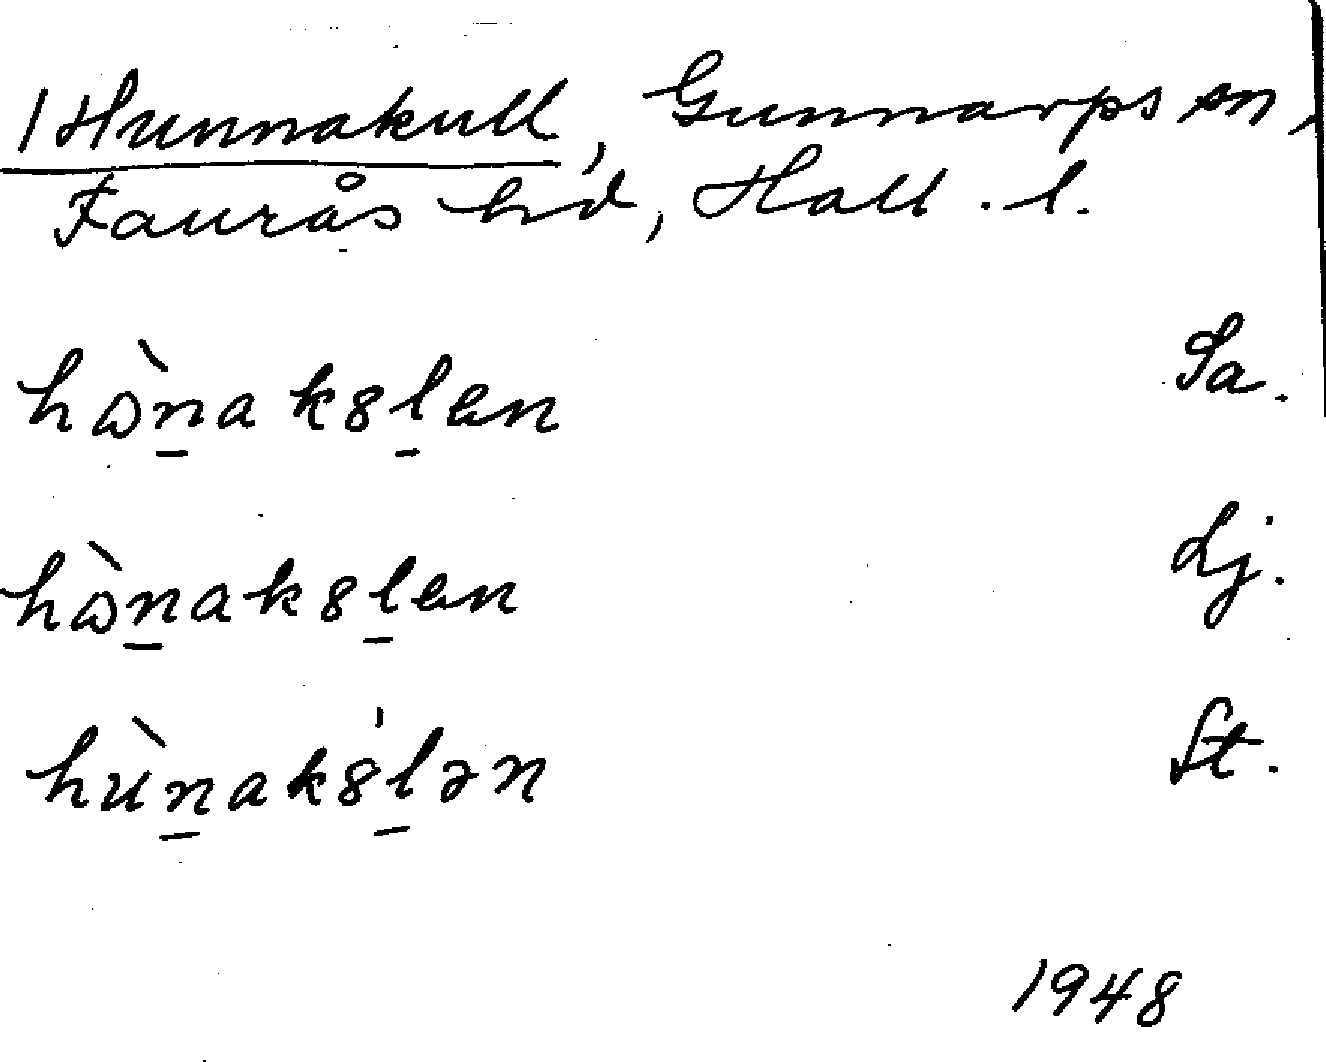 /Hunnakull, Gunnarps sn,
Faurås hd, Hall. l.
hὼn̲aks8l̲en Sa.
hὼn̲ak8l̲en Lj.
hùn̲ak8́l̲ən St.
1948